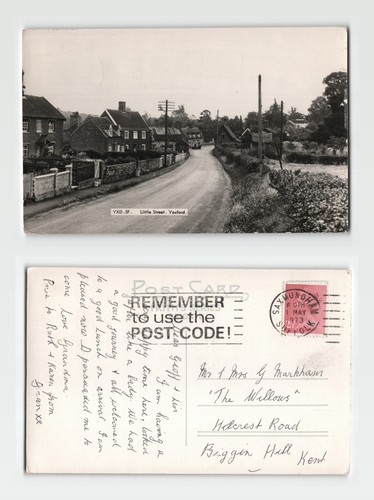 YXD .5F. Little Street. Yoxford.
POST CARD
REMEMBER
to use the
POST CODE!
SAXMUNDHAM
MAY
1973
SUFFOLK
Dear Geoff & Liv
I am having a
happy time here, looked
after like a baby. We had
a good journey & all welcomed
to a good lunch on arrival. I am
pleased now D persuaded me to
come. Love Grandma
Pris to Ruth & Karen from
Gran xx
Mr & Mrs G Markham
"The Willows"
Holcrest Road
Biggin Hill
Kent